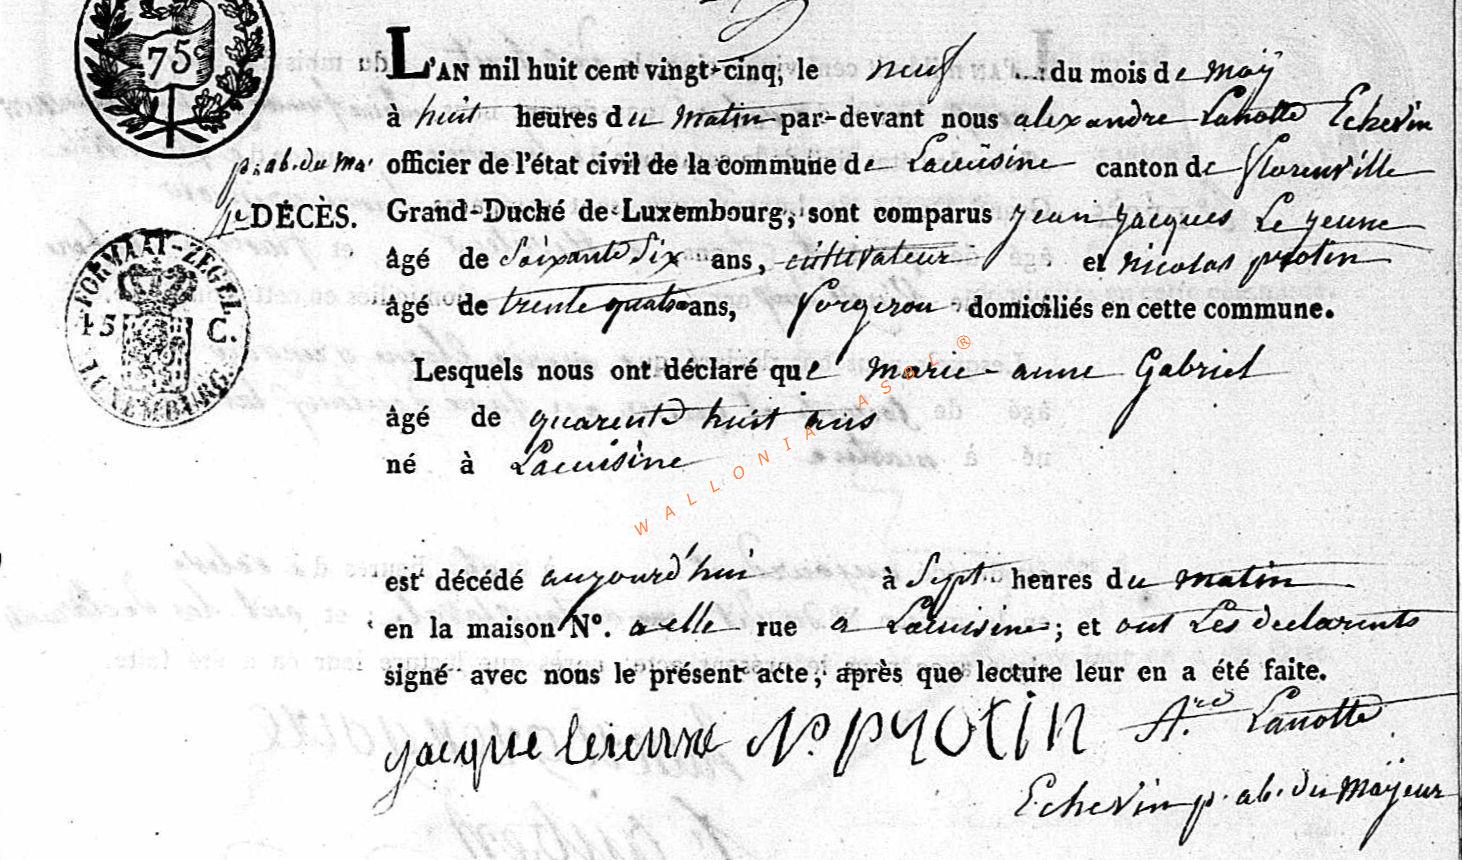 75c
L'AN mil huit cent vingt-cinq, le neuf du mois de May
à huit heures du matin par-devant nous alexandre Lanotte Echevin
p. ab. du Ma. officier de l'état civil de la commune de Lacuisine canton de florenville
DÉCÈS. Grand-Duché de Luxembourg, sont comparus jean jacques Le jeune
FORMAAT-ZEGEL
âgé de Soixante Six ans, cultivateur et nicolas pyotin
45 C.
âgé de trente quatre ans, forgeron domiciliés en cette commune.
LUXEMBURG.
Lesquels nous ont déclaré que marie-anne Gabriel
âgé de quarente huit ans
né à Lacuisine
WALLONIA ASBL ®
est décédé aujourd'hui à Sept heures du matin
en la maison No. a elle rue a Lacuisine; et ont Les declarents
signé avec nous le présent acte, après que lecture leur en a été faite.
jacque leieune N. pyotin A.re Lanotte
Echevin p. ab. du Mayeur